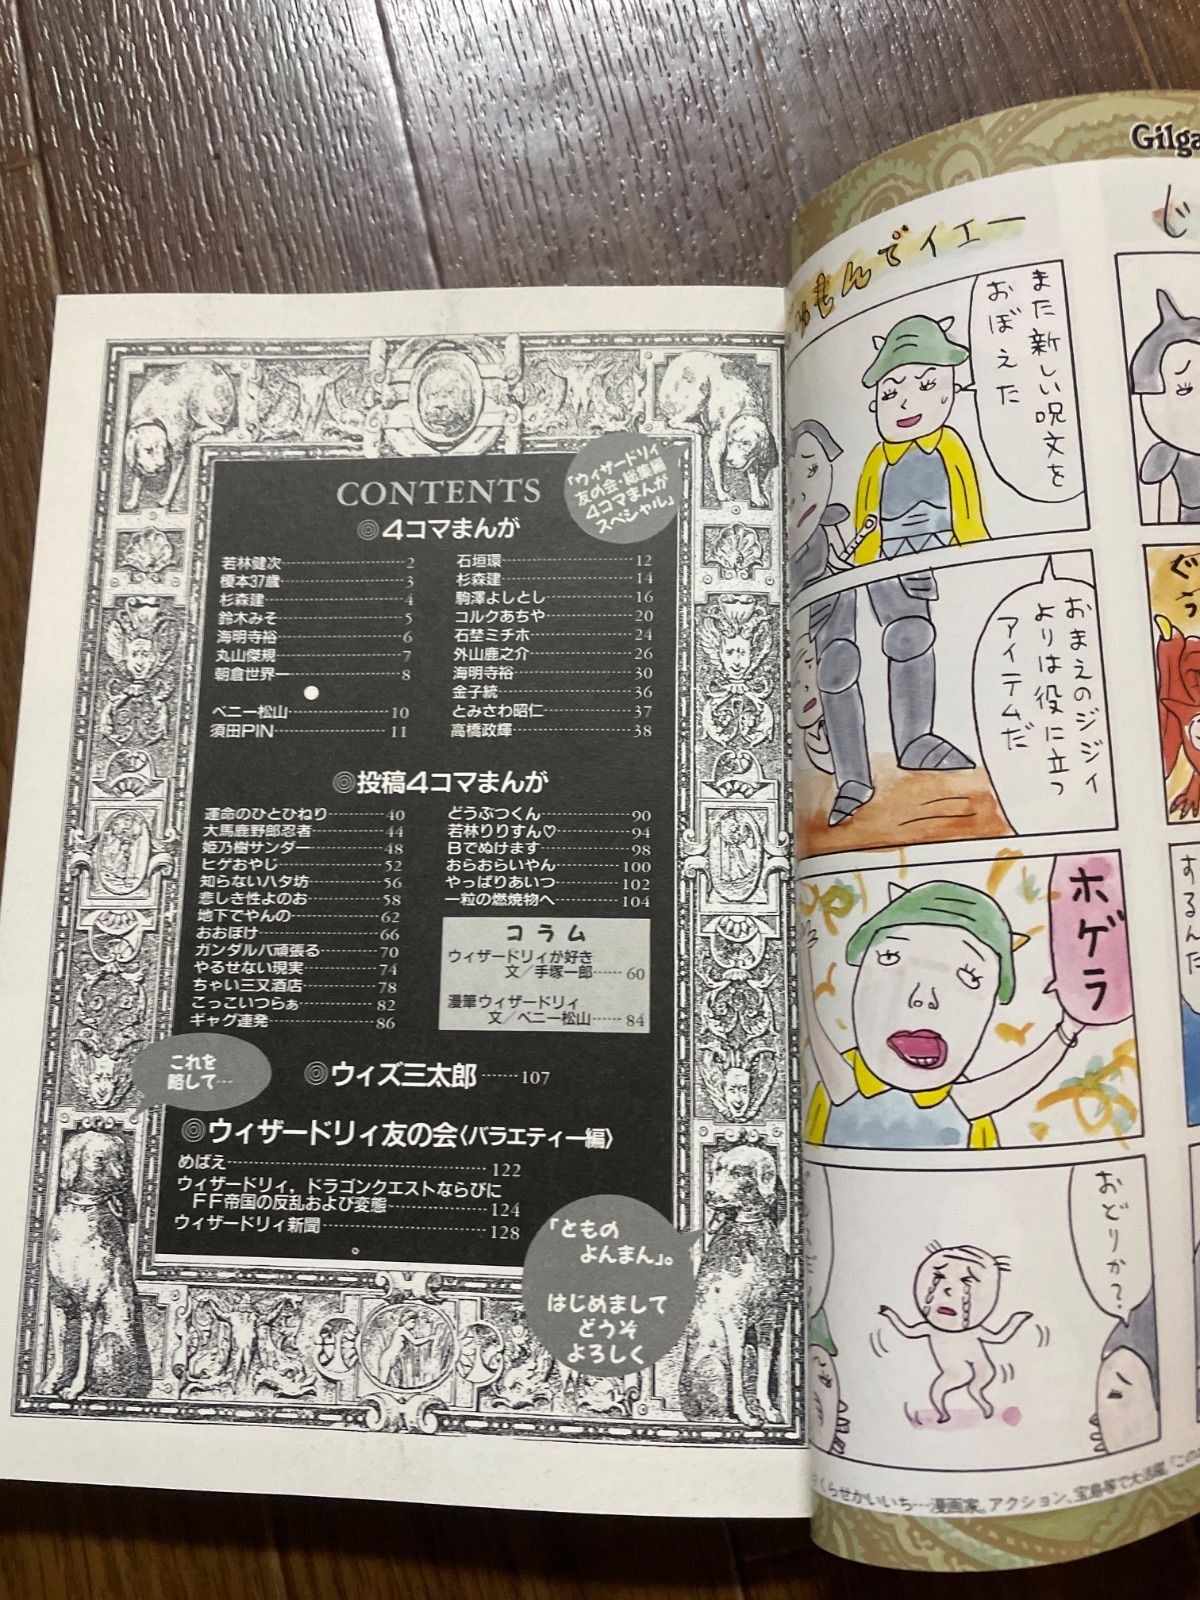 CONTENTS
「ウィザードリィ
友の会・総集編
4コマまんが
スペシャル」
◎4コマまんが
若林健次 2
榎本37歳 3
杉森建 4
鈴木みそ 5
海明寺裕 6
丸山傑規 7
朝倉世界一 8
●
ベニー松山 10
須田PIN 11
石垣環 12
杉森建 14
駒澤よしとし 16
コルクあちや 20
石埜ミチホ 24
外山鹿之介 26
海明寺裕 30
金子統 36
とみさわ昭仁 37
高橋政輝 38
◎投稿4コマまんが
運命のひとひねり 40
大馬鹿野郎忍者 44
姫乃樹サンダー 48
ヒゲおやじ 52
知らないハタ坊 56
悲しき性よのお 58
地下でやんの 62
おおぼけ 66
ガンダルバ頑張る 70
やるせない現実 74
ちゃい三又酒店 78
こっこいつらぁ 82
ギャグ連発 86
どうぶつくん 90
若林りりすん♡ 94
Bでぬけます 98
おらおらいやん 100
やっぱりあいつ 102
一粒の燃焼物へ 104
コラム
ウィザードリィが好き
文／手塚一郎 60
漫筆ウィザードリィ
文／ベニー松山 84
これを
略して…
◎ウィズ三太郎 107
◎ウィザードリィ友の会〈バラエティー編〉
めばえ 122
ウィザードリィ，ドラゴンクエストならびに
FF帝国の反乱および変態 124
ウィザードリィ新聞 128
「ともの
よんまん」。
はじめまして
どうぞ
よろしく
Gilga
じ
もんでイエー
また新しい呪文を
おぼえた
おまえのジジィ
よりは役に立つ
アイテムだ
ホゲラ
おどりか?
ぐう
するんた
くらせかいいち…漫画家。アクション、宝島等で大活躍。「この